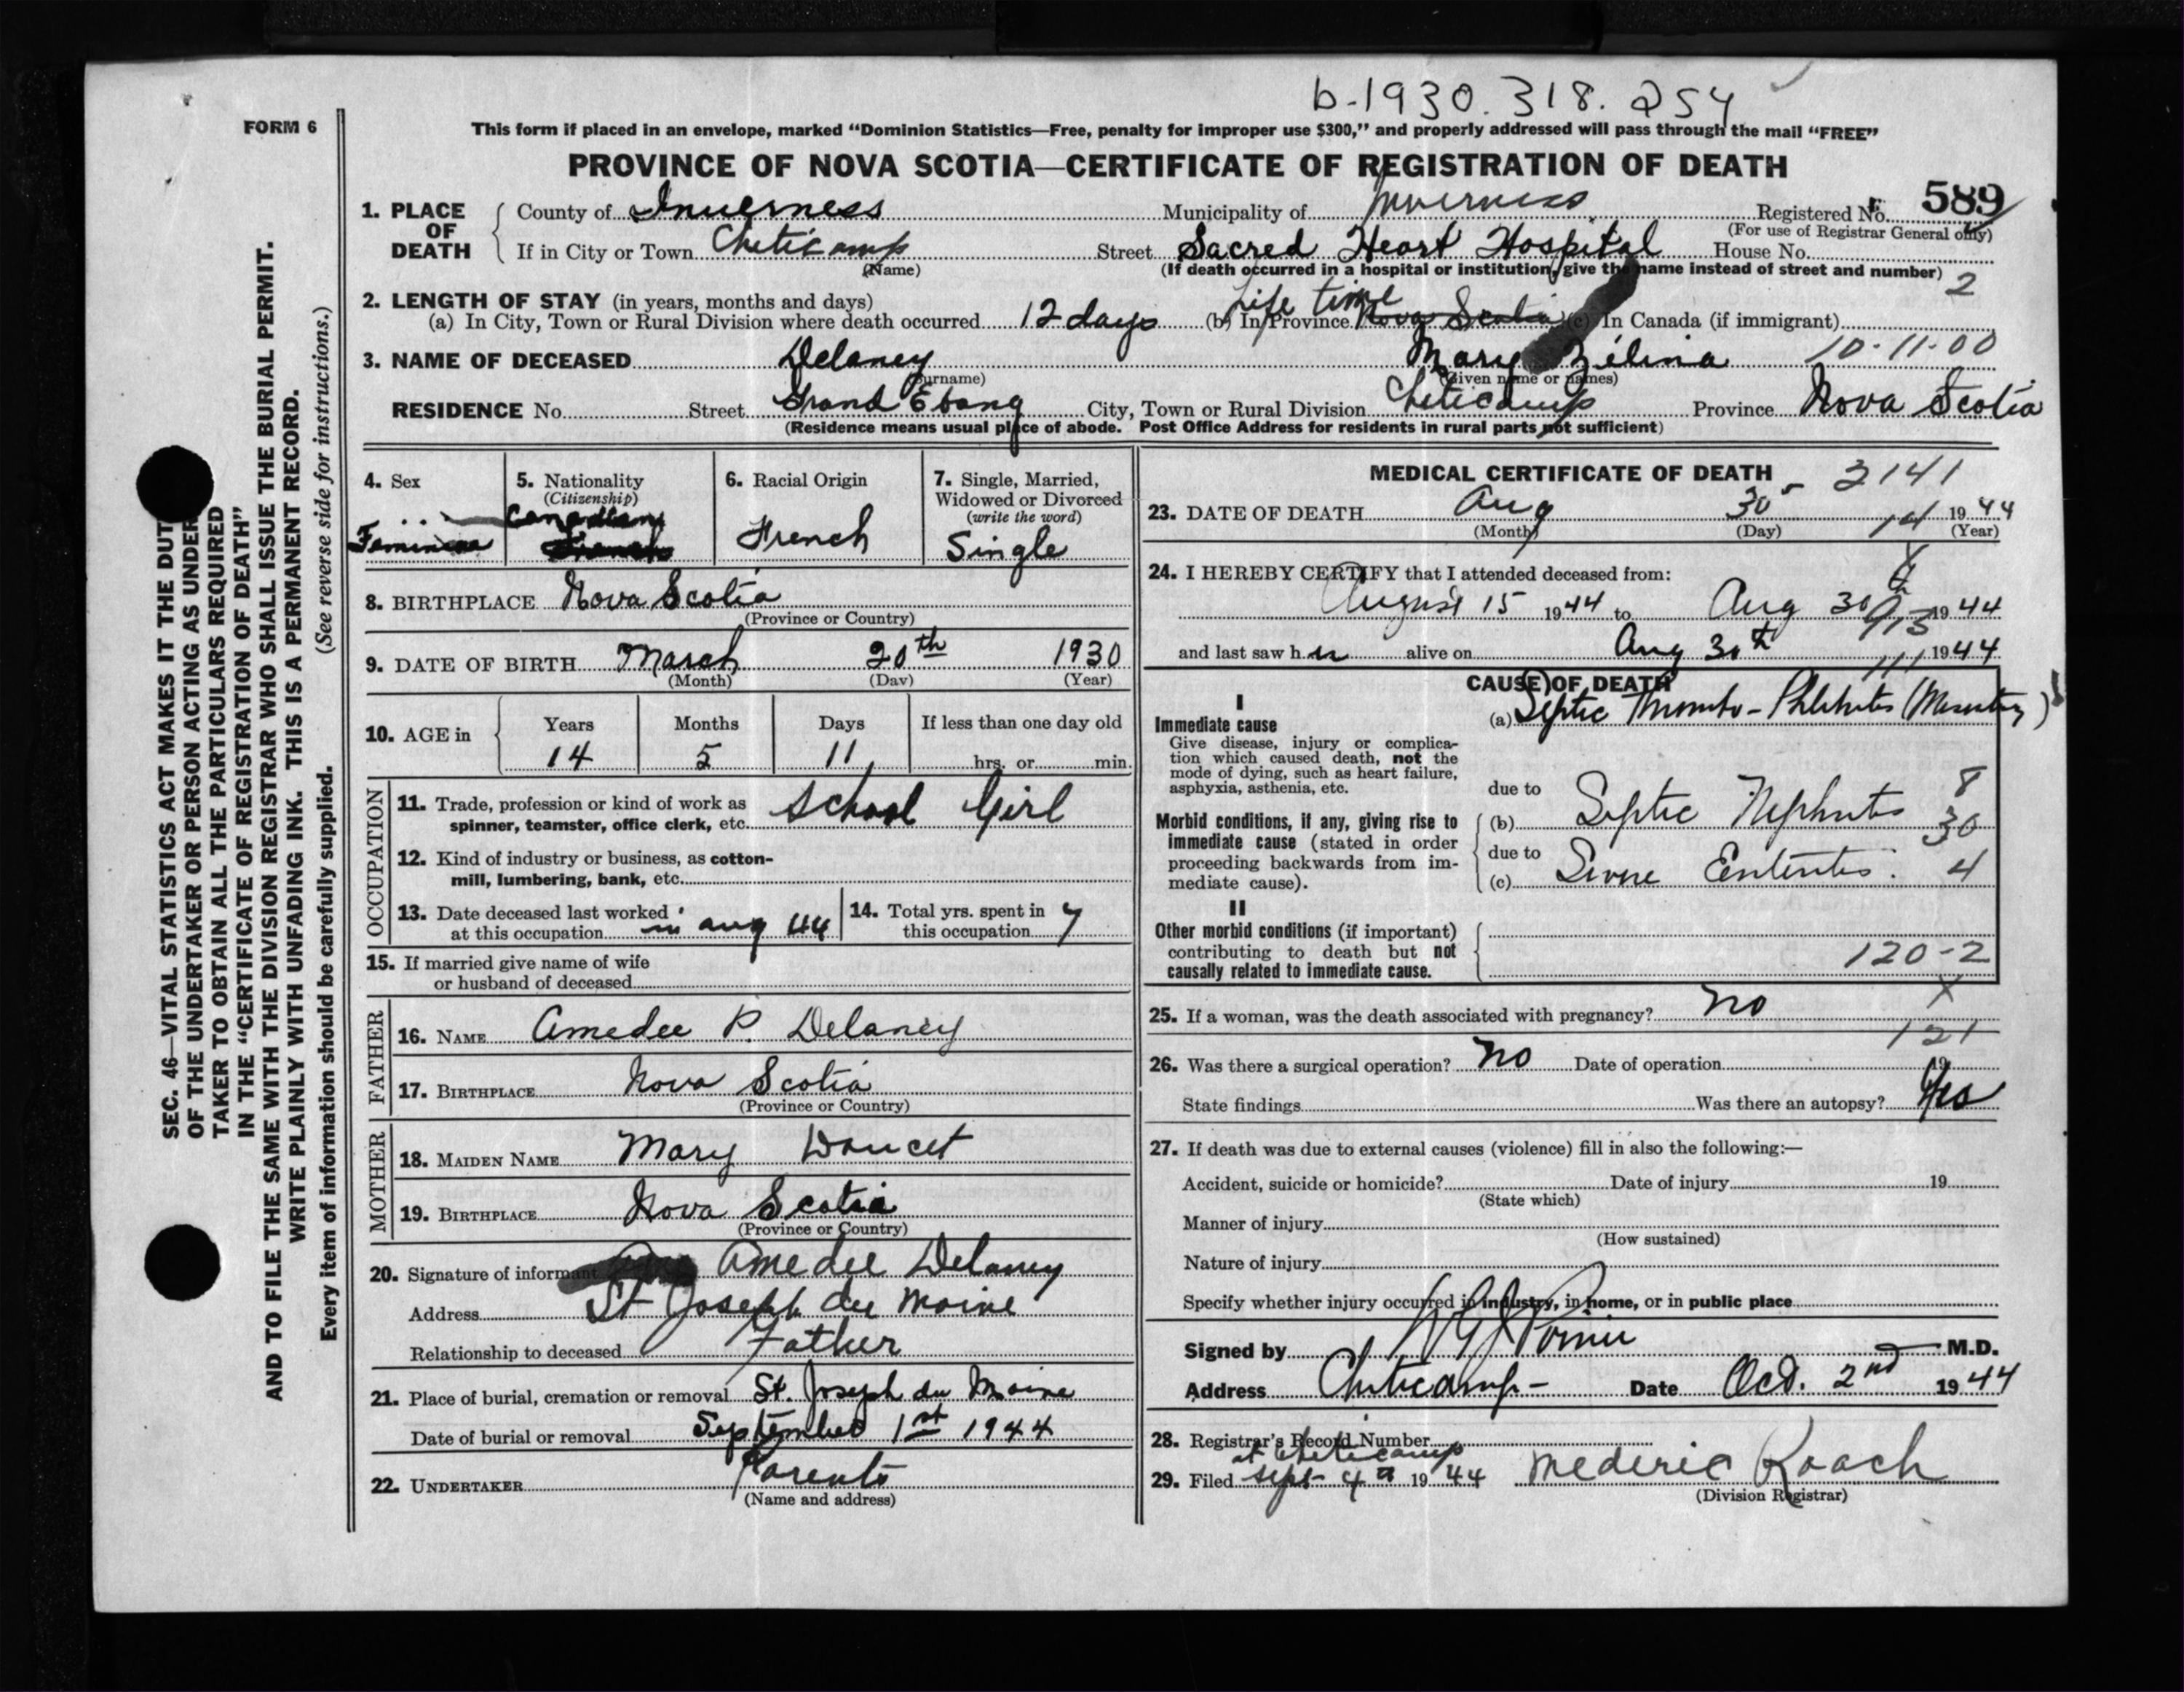 b-1930. 318. 254
FORM 6
This form if placed in an envelope, marked “Dominion Statistics—Free, penalty for improper use $300,” and properly addressed will pass through the mail “FREE”
PROVINCE OF NOVA SCOTIA—CERTIFICATE OF REGISTRATION OF DEATH
1. PLACE OF DEATH County of Inverness Municipality of Inverness Registered No. 589
(For use of Registrar General only)
If in City or Town Cheticamp Street Sacred Heart Hospital House No.
(Name) (If death occurred in a hospital or institution, give the name instead of street and number) 2
2. LENGTH OF STAY (in years, months and days) Life time
(a) In City, Town or Rural Division where death occurred 12 days (b) In Province Nova Scotia (c) In Canada (if immigrant)
3. NAME OF DECEASED Delaney Mary Zélina 10-11-00
(Surname) (Given name or names)
RESIDENCE No. Street Grand Etang City, Town or Rural Division Cheticamp Province Nova Scotia
(Residence means usual place of abode. Post Office Address for residents in rural parts not sufficient)
SEC. 46—VITAL STATISTICS ACT MAKES IT THE DUTY
OF THE UNDERTAKER OR PERSON ACTING AS UNDER
TAKER TO OBTAIN ALL THE PARTICULARS REQUIRED
IN THE “CERTIFICATE OF REGISTRATION OF DEATH”
AND TO FILE THE SAME WITH THE DIVISION REGISTRAR WHO SHALL ISSUE THE BURIAL PERMIT.
WRITE PLAINLY WITH UNFADING INK. THIS IS A PERMANENT RECORD.
Every item of information should be carefully supplied. (See reverse side for instructions.)
4. Sex
Feminine
5. Nationality
(Citizenship)
Canadian
French
6. Racial Origin
French
7. Single, Married,
Widowed or Divorced
(write the word)
Single
8. BIRTHPLACE Nova Scotia
(Province or Country)
9. DATE OF BIRTH March 20th 1930
(Month) (Day) (Year)
10. AGE in Years Months Days If less than one day old
14 5 11 hrs. or min.
OCCUPATION
11. Trade, profession or kind of work as
spinner, teamster, office clerk, etc. School Girl
12. Kind of industry or business, as cotton-
mill, lumbering, bank, etc.
13. Date deceased last worked
at this occupation in aug 44
14. Total yrs. spent in
this occupation 7
15. If married give name of wife
or husband of deceased
FATHER
16. NAME Amedee P. Delaney
17. BIRTHPLACE Nova Scotia
(Province or Country)
MOTHER
18. MAIDEN NAME Mary Doucet
19. BIRTHPLACE Nova Scotia
(Province or Country)
20. Signature of informant Amedee Delaney
Address St Joseph du Moine
Relationship to deceased Father
21. Place of burial, cremation or removal St. Joseph du Moine
Date of burial or removal September 1st 1944
22. UNDERTAKER Parents
(Name and address)
MEDICAL CERTIFICATE OF DEATH 2141
23. DATE OF DEATH Aug 30 1944
(Month) (Day) (Year)
24. I HEREBY CERTIFY that I attended deceased from:
August 15 1944 to Aug 30th 1944
and last saw her alive on Aug 30th 1944
CAUSE OF DEATH
I
Immediate cause (a) Septic Thrombo-Phlebitis
Give disease, injury or complica-
tion which caused death, not the
mode of dying, such as heart failure,
asphyxia, asthenia, etc.
due to 8
Morbid conditions, if any, giving rise to
immediate cause (stated in order
proceeding backwards from im-
mediate cause).
(b) Septic Nephritis 30
due to
(c) Enteritis. 4
II
Other morbid conditions (if important)
contributing to death but not
causally related to immediate cause.
120-2
X
25. If a woman, was the death associated with pregnancy? No
121
26. Was there a surgical operation? No Date of operation 19
State findings Was there an autopsy?
27. If death was due to external causes (violence) fill in also the following:—
Accident, suicide or homicide? Date of injury 19
(State which)
Manner of injury
(How sustained)
Nature of injury
Specify whether injury occurred in industry, in home, or in public place
Signed by M.D.
Address Cheticamp- Date Oct. 2nd 1944
28. Registrar's Record Number
at Cheticamp
29. Filed Sept 4th 1944 Mederic Roach
(Division Registrar)